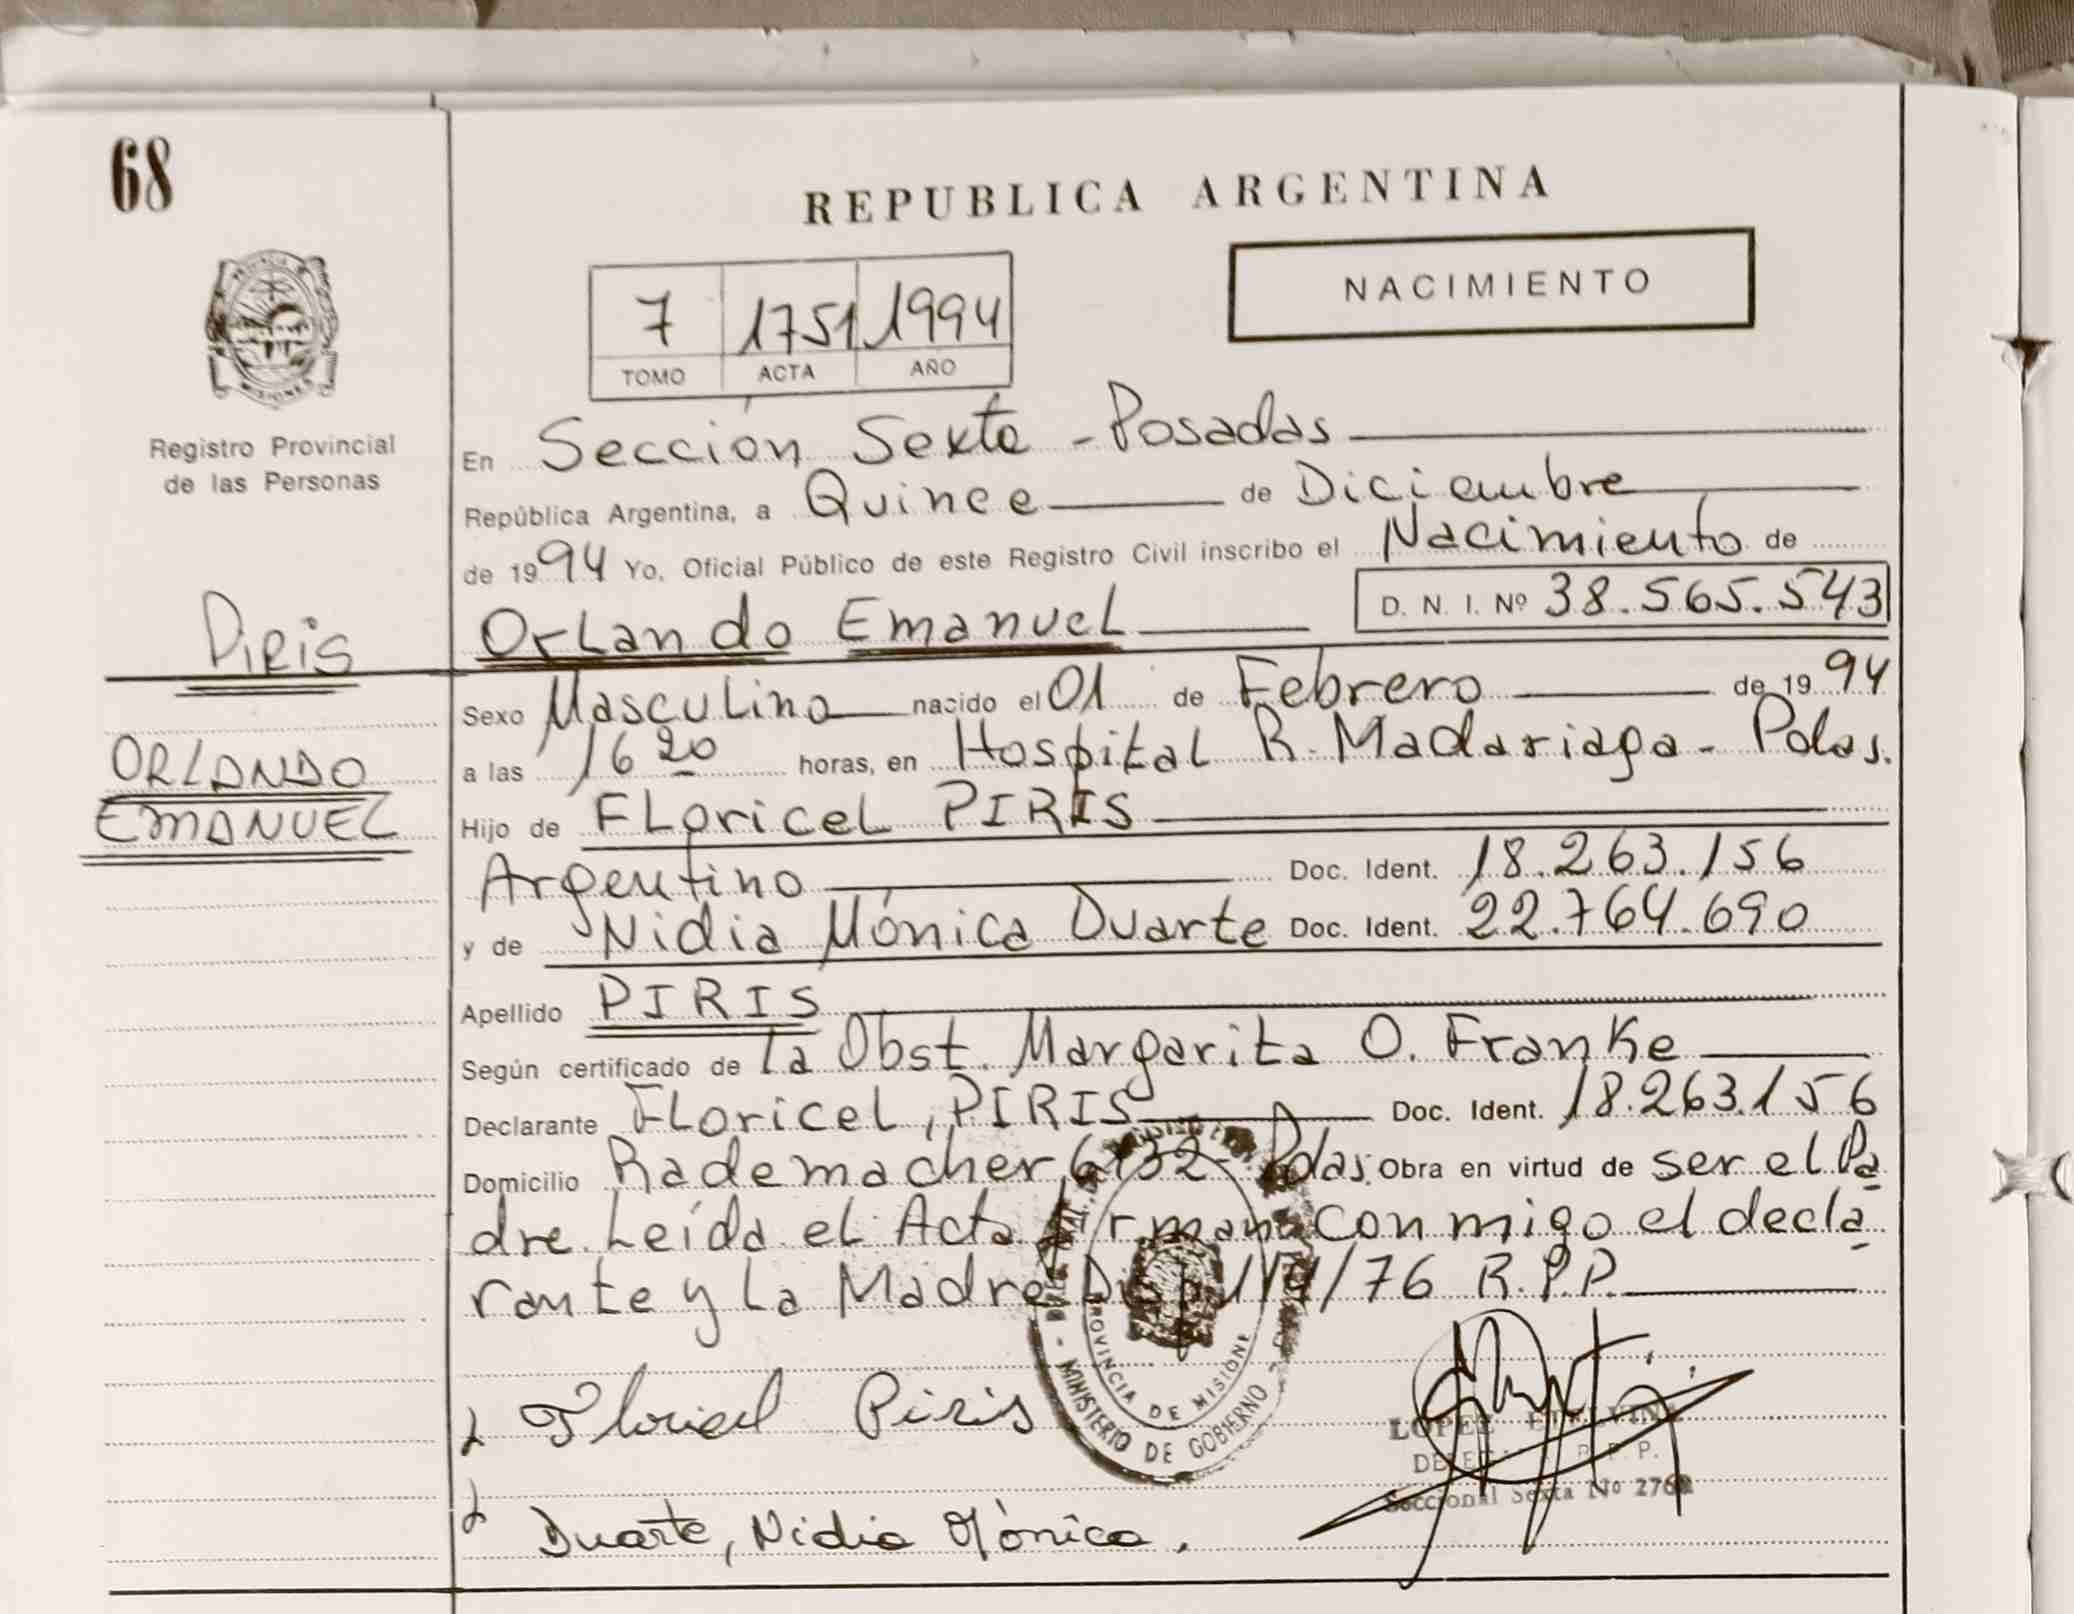 68
REPUBLICA ARGENTINA
NACIMIENTO
7 1751 1994
TOMO ACTA AÑO
PROVINCIA DE
MISIONES
Registro Provincial
de las Personas
En Sección Sexta - Posadas
República Argentina, a Quince de Diciembre
de 1994 Yo, Oficial Público de este Registro Civil inscribo el Nacimiento de
Orlando Emanuel D. N. I. Nº 38.565.543
PIRIS
Sexo Masculino nacido el 01 de Febrero de 1994
ORLANDO
a las 16 20 horas, en Hospital R. Madariaga - Pdas.
EMANUEL
Hijo de Floricel PIRIS
Argentino Doc. Ident. 18.263.156
y de Nidia Mónica Duarte Doc. Ident. 22.764.690
Apellido PIRIS
Según certificado de la Obst. Margarita O. Franke
Declarante Floricel, PIRIS Doc. Ident. 18.263.156
Domicilio Rademacher 6132 - Pdas. Obra en virtud de ser el Pa
dre. Leída el Acta firman conmigo el decla
rante y la Madre. Disp. /76 R.P.P.
PROVINCIA DE MISIONES
MINISTERIO DE GOBIERNO
Floricel Piris
LOPEZ
R. P. P.
Seccional Sexta No 276
Duarte, Nidia Mónica.